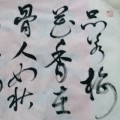 品若梅
花香在
骨人如秋